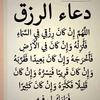 دعاء الرزق
اللَّهُمَّ إِنْ كَانَ رِزْقِي فِي السَّمَاءِ
فَأَنْزِلْهُ وَإِنْ كَانَ فِي الْأَرْضِ
فَأَخْرِجْهُ وَإِنْ كَانَ بَعِيدًا فَقَرِّبْهُ
وَإِنْ كَانَ قَرِيبًا فَيَسِّرْهُ وَإِنْ كَانَ
قَلِيلًا فَكَثِّرْهُ وَإِنْ كَانَ كَثِيرًا